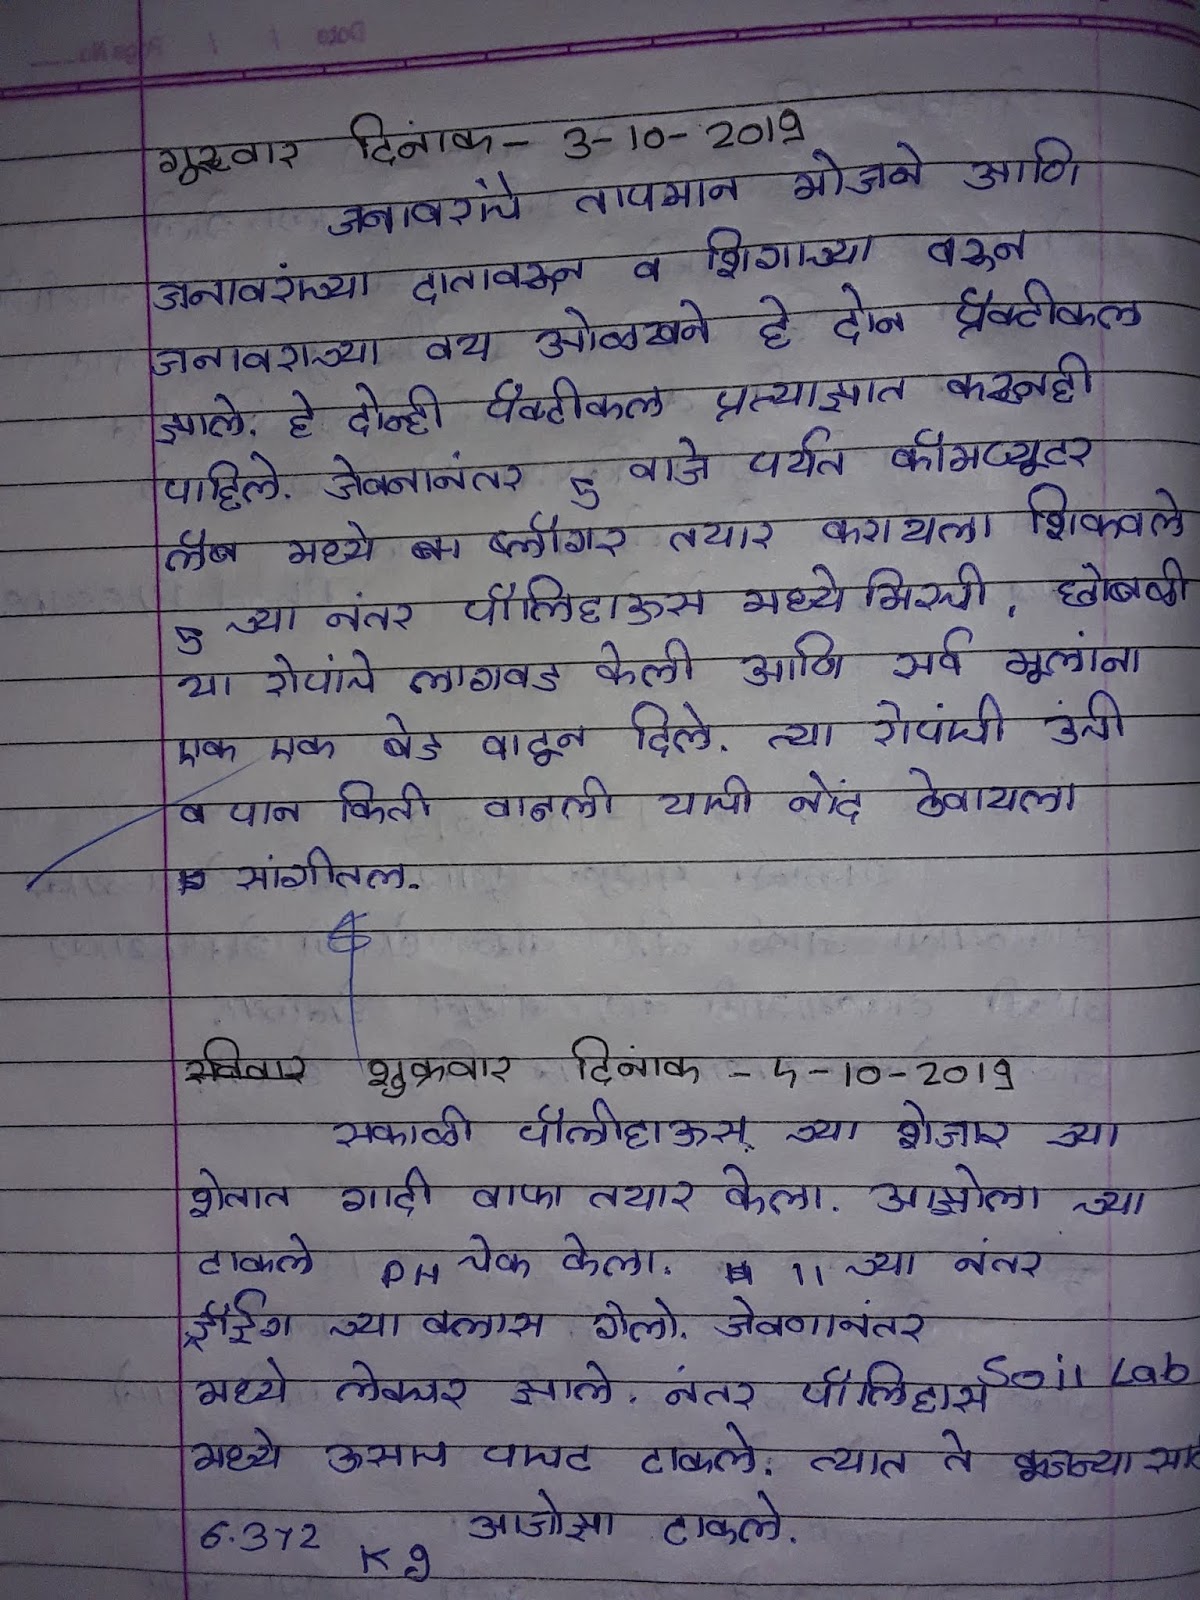 गुरुवार दिनांक - 3-10-2019
जनावरांचे तापमान मोजने आणि
जनावरांच्या दातावरून व शिगाच्या वरून
जनावराच्या वय ओळखने हे दोन प्रॅक्टीकल
झाले. हे दोन्ही प्रॅक्टीकल प्रत्याक्षात करूनही
पाहिले. जेवनानंतर 5 वाजे पर्यंत कॉमप्यूटर
लॅब मध्ये ब्लॉगर तयार करायला शिकवले
5 च्या नंतर पॉलिहाऊस मध्ये मिरची, ढोबळी
या रोपांचे लागवड केली आणि सर्व मूलांना
एक एक बेड वाटून दिले. त्या रोपांची उंची
व पान किती वानली याची नोंद ठेवायला
सांगीतल.
रविवार शुक्रवार दिनांक - 4-10-2019
सकाळी पॉलीहाऊस च्या शेजार च्या
शेतात गादी वाफा तयार केला. आझोला च्या
टाकले PH चेक केला. 11 च्या नंतर
ड्रॉईंग च्या क्लास गेलो. जेवणानंतर
Soil Lab
मध्ये लेक्चर झाले. नंतर पॉलिहास
मध्ये ऊसाच पाचट टाकले. त्यात ते कूजन्या
6.372 Kg आजोझा टाकले.